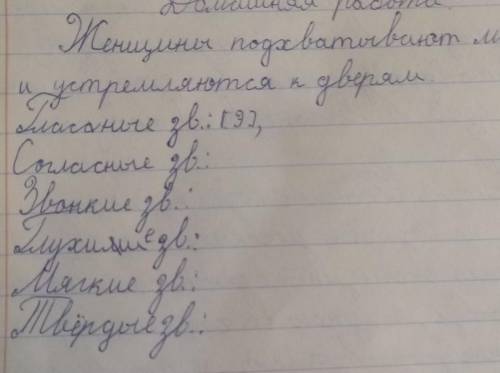 Домашняя работа.
Женщины подхватывают
и устремляются к дверям
Гласаные зв.: [э],
Согласные зв.:
Звонкие зв.:
Глухие зв.:
Мягкие зв.:
Твёрдые зв.: